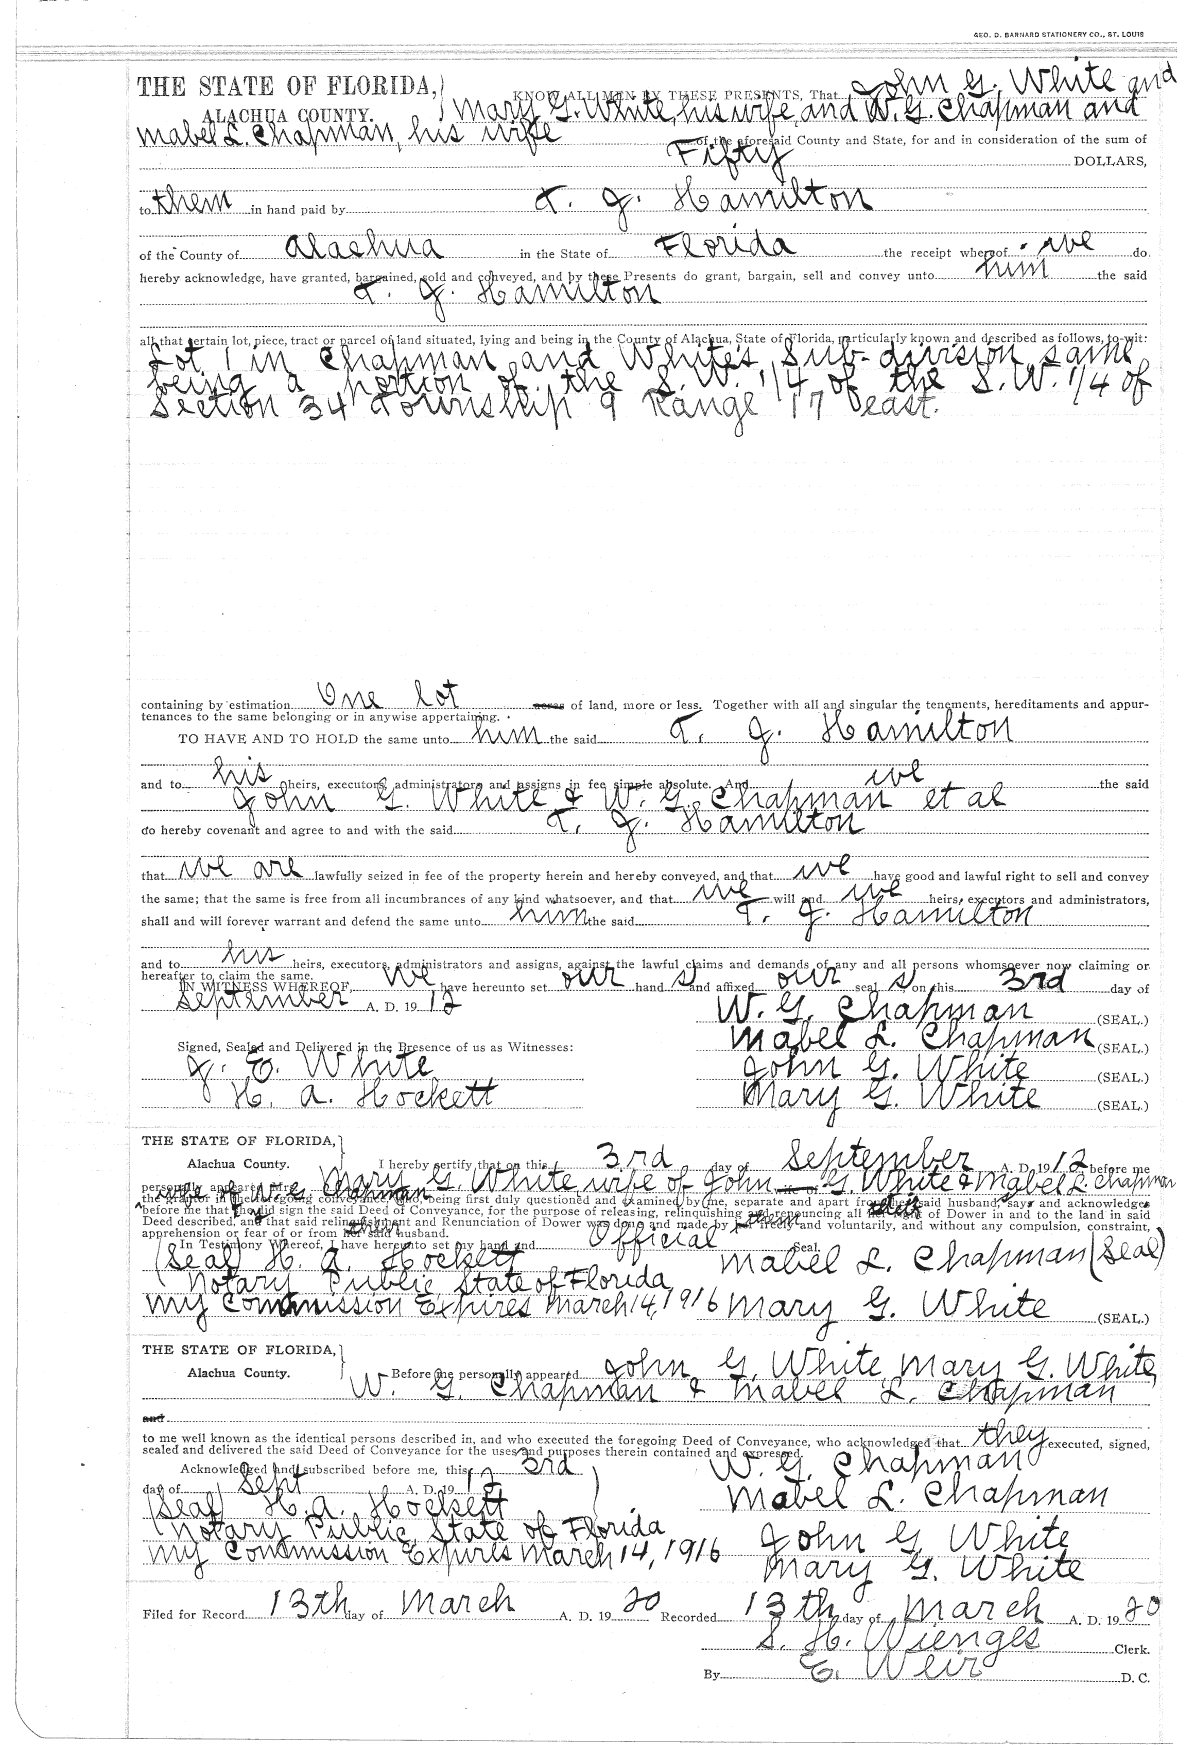 GEO. D. BARNARD STATIONERY CO., ST. LOUIS
THE STATE OF FLORIDA,} KNOW ALL MEN BY THESE PRESENTS, That John G. White and
ALACHUA COUNTY. Mary G. White, his wife, and W. G. Chapman and
Mabel L. Chapman, his wife
of the aforesaid County and State, for and in consideration of the sum of
Fifty DOLLARS,
to them in hand paid by T. J. Hamilton
of the County of Alachua in the State of Florida the receipt whereof we do
hereby acknowledge, have granted, bargained, sold and conveyed, and by these Presents do grant, bargain, sell and convey unto him the said
T. J. Hamilton
all that certain lot, piece, tract or parcel of land situated, lying and being in the County of Alachua, State of Florida, particularly known and described as follows, to-wit:
Lot 1 in Chapman and White's Sub-division same
being a portion of the S.W. 1/4 of the S.W. 1/4 of
Section 34 Township 9 Range 17 east.
containing by estimation One lot acres of land, more or less. Together with all and singular the tenements, hereditaments and appur-
tenances to the same belonging or in anywise appertaining.
TO HAVE AND TO HOLD the same unto him the said T. J. Hamilton
and to his heirs, executors, administrators and assigns in fee simple absolute. And we the said
John G. White & W. G. Chapman et al
do hereby covenant and agree to and with the said T. J. Hamilton
that we are lawfully seized in fee of the property herein and hereby conveyed, and that we have good and lawful right to sell and convey
the same; that the same is free from all incumbrances of any kind whatsoever, and that we will and we heirs, executors and administrators,
shall and will forever warrant and defend the same unto him the said T. J. Hamilton
and to his heirs, executors, administrators and assigns, against the lawful claims and demands of any and all persons whomsoever now claiming or
hereafter to claim the same.
IN WITNESS WHEREOF We have hereunto set our hand s and affixed our seal s on this 3rd day of
September A. D. 1912
W. G. Chapman (SEAL.)
Mabel L. Chapman (SEAL.)
Signed, Sealed and Delivered in the Presence of us as Witnesses:
J. E. White John G. White (SEAL.)
H. A. Hockett Mary G. White (SEAL.)
THE STATE OF FLORIDA,}
Alachua County. I hereby certify that on this 3rd day of September A. D. 1912 before me
personally appeared Mrs. Mary G. White wife of John G. White & Mabel L. Chapman
wife of W. G. Chapman
the grantor in the foregoing conveyance, who, being first duly questioned and examined by me, separate and apart from their said husband, says and acknowledges
before me that she did sign the said Deed of Conveyance, for the purpose of releasing, relinquishing and renouncing all their right of Dower in and to the land in said
Deed described, and that said relinquishment and Renunciation of Dower was done and made by them freely and voluntarily, and without any compulsion, constraint,
apprehension or fear of or from their said husband.
In Testimony Whereof, I have hereunto set my hand and Official Seal.
(Seal) H. A. Hockett Mabel L. Chapman (Seal)
Notary Public State of Florida
My Commission Expires March 14, 1916 Mary G. White (SEAL.)
THE STATE OF FLORIDA,}
Alachua County. Before me personally appeared John G. White Mary G. White,
W. G. Chapman & Mabel L. Chapman
and
to me well known as the identical persons described in, and who executed the foregoing Deed of Conveyance, who acknowledged that they executed, signed,
sealed and delivered the said Deed of Conveyance for the uses and purposes therein contained and expressed.
Acknowledged and subscribed before me, this 3rd W. G. Chapman
day of Sept A. D. 1912
(Seal) H. A. Hockett Mabel L. Chapman
Notary Public State of Florida John G. White
My Commission Expires March 14, 1916
Mary G. White
Filed for Record 13th day of March A. D. 1920 Recorded 13th day of March A. D. 1920
S. H. Wienges Clerk.
By E. Weir D. C.